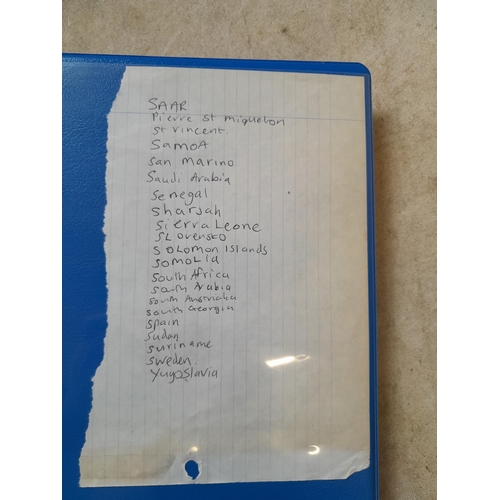 SAAR
Pierre st miquelon
St vincent.
SAMOA
San Marino
Saudi Arabia
Senegal
Sharjah
Sierra Leone
SLovensko
SOLOMON Islands
SOMOLIA
South Africa
South Arabia
South Australia
South Georgia
Spain
Sudan
Suriname
Sweden.
Yugoslavia